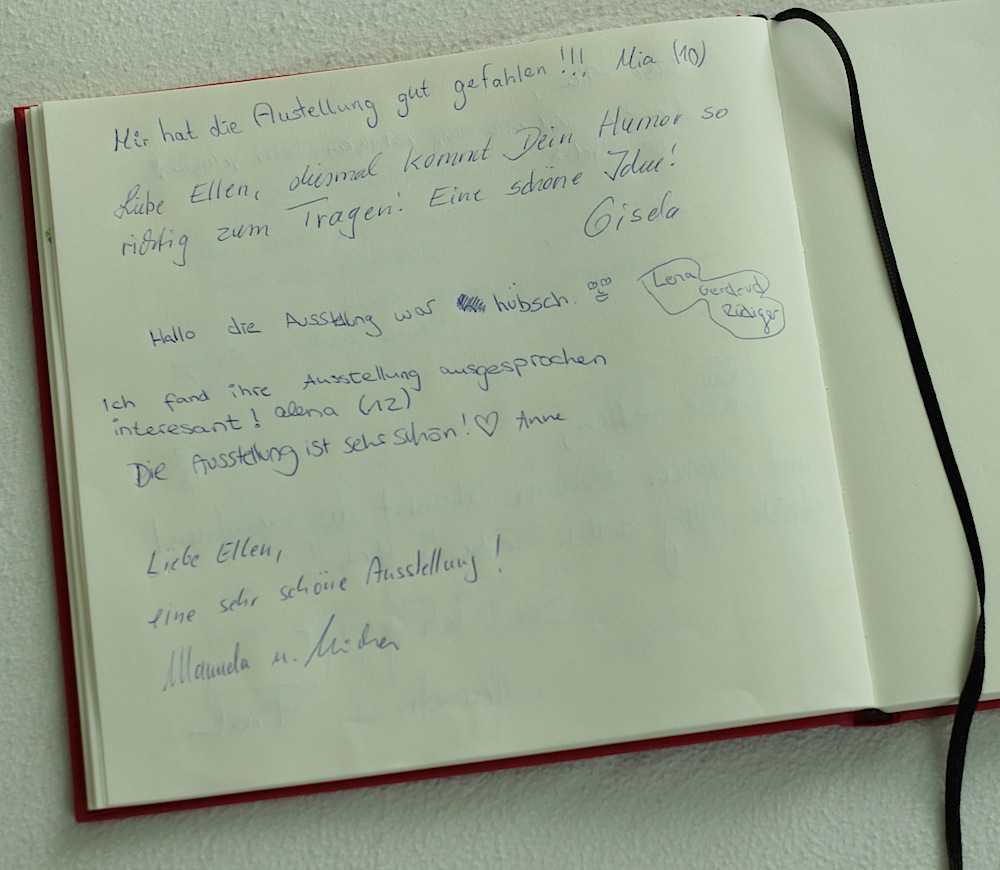 Mir hat die Austellung gut gefahlen !!! Mia (10)
Liebe Ellen, diesmal kommt Dein Humor so
richtig zum Tragen! Eine schöne Idee!
Gisela
Hallo die Ausstellung war hübsch.
Lena
Rüdiger
Ich fand ihre Ausstellung ausgesprochen
interesant! alena (12)
Die Ausstellung ist sehr schön! ♡ Anne
Liebe Ellen,
eine sehr schöne Ausstellung!
u.